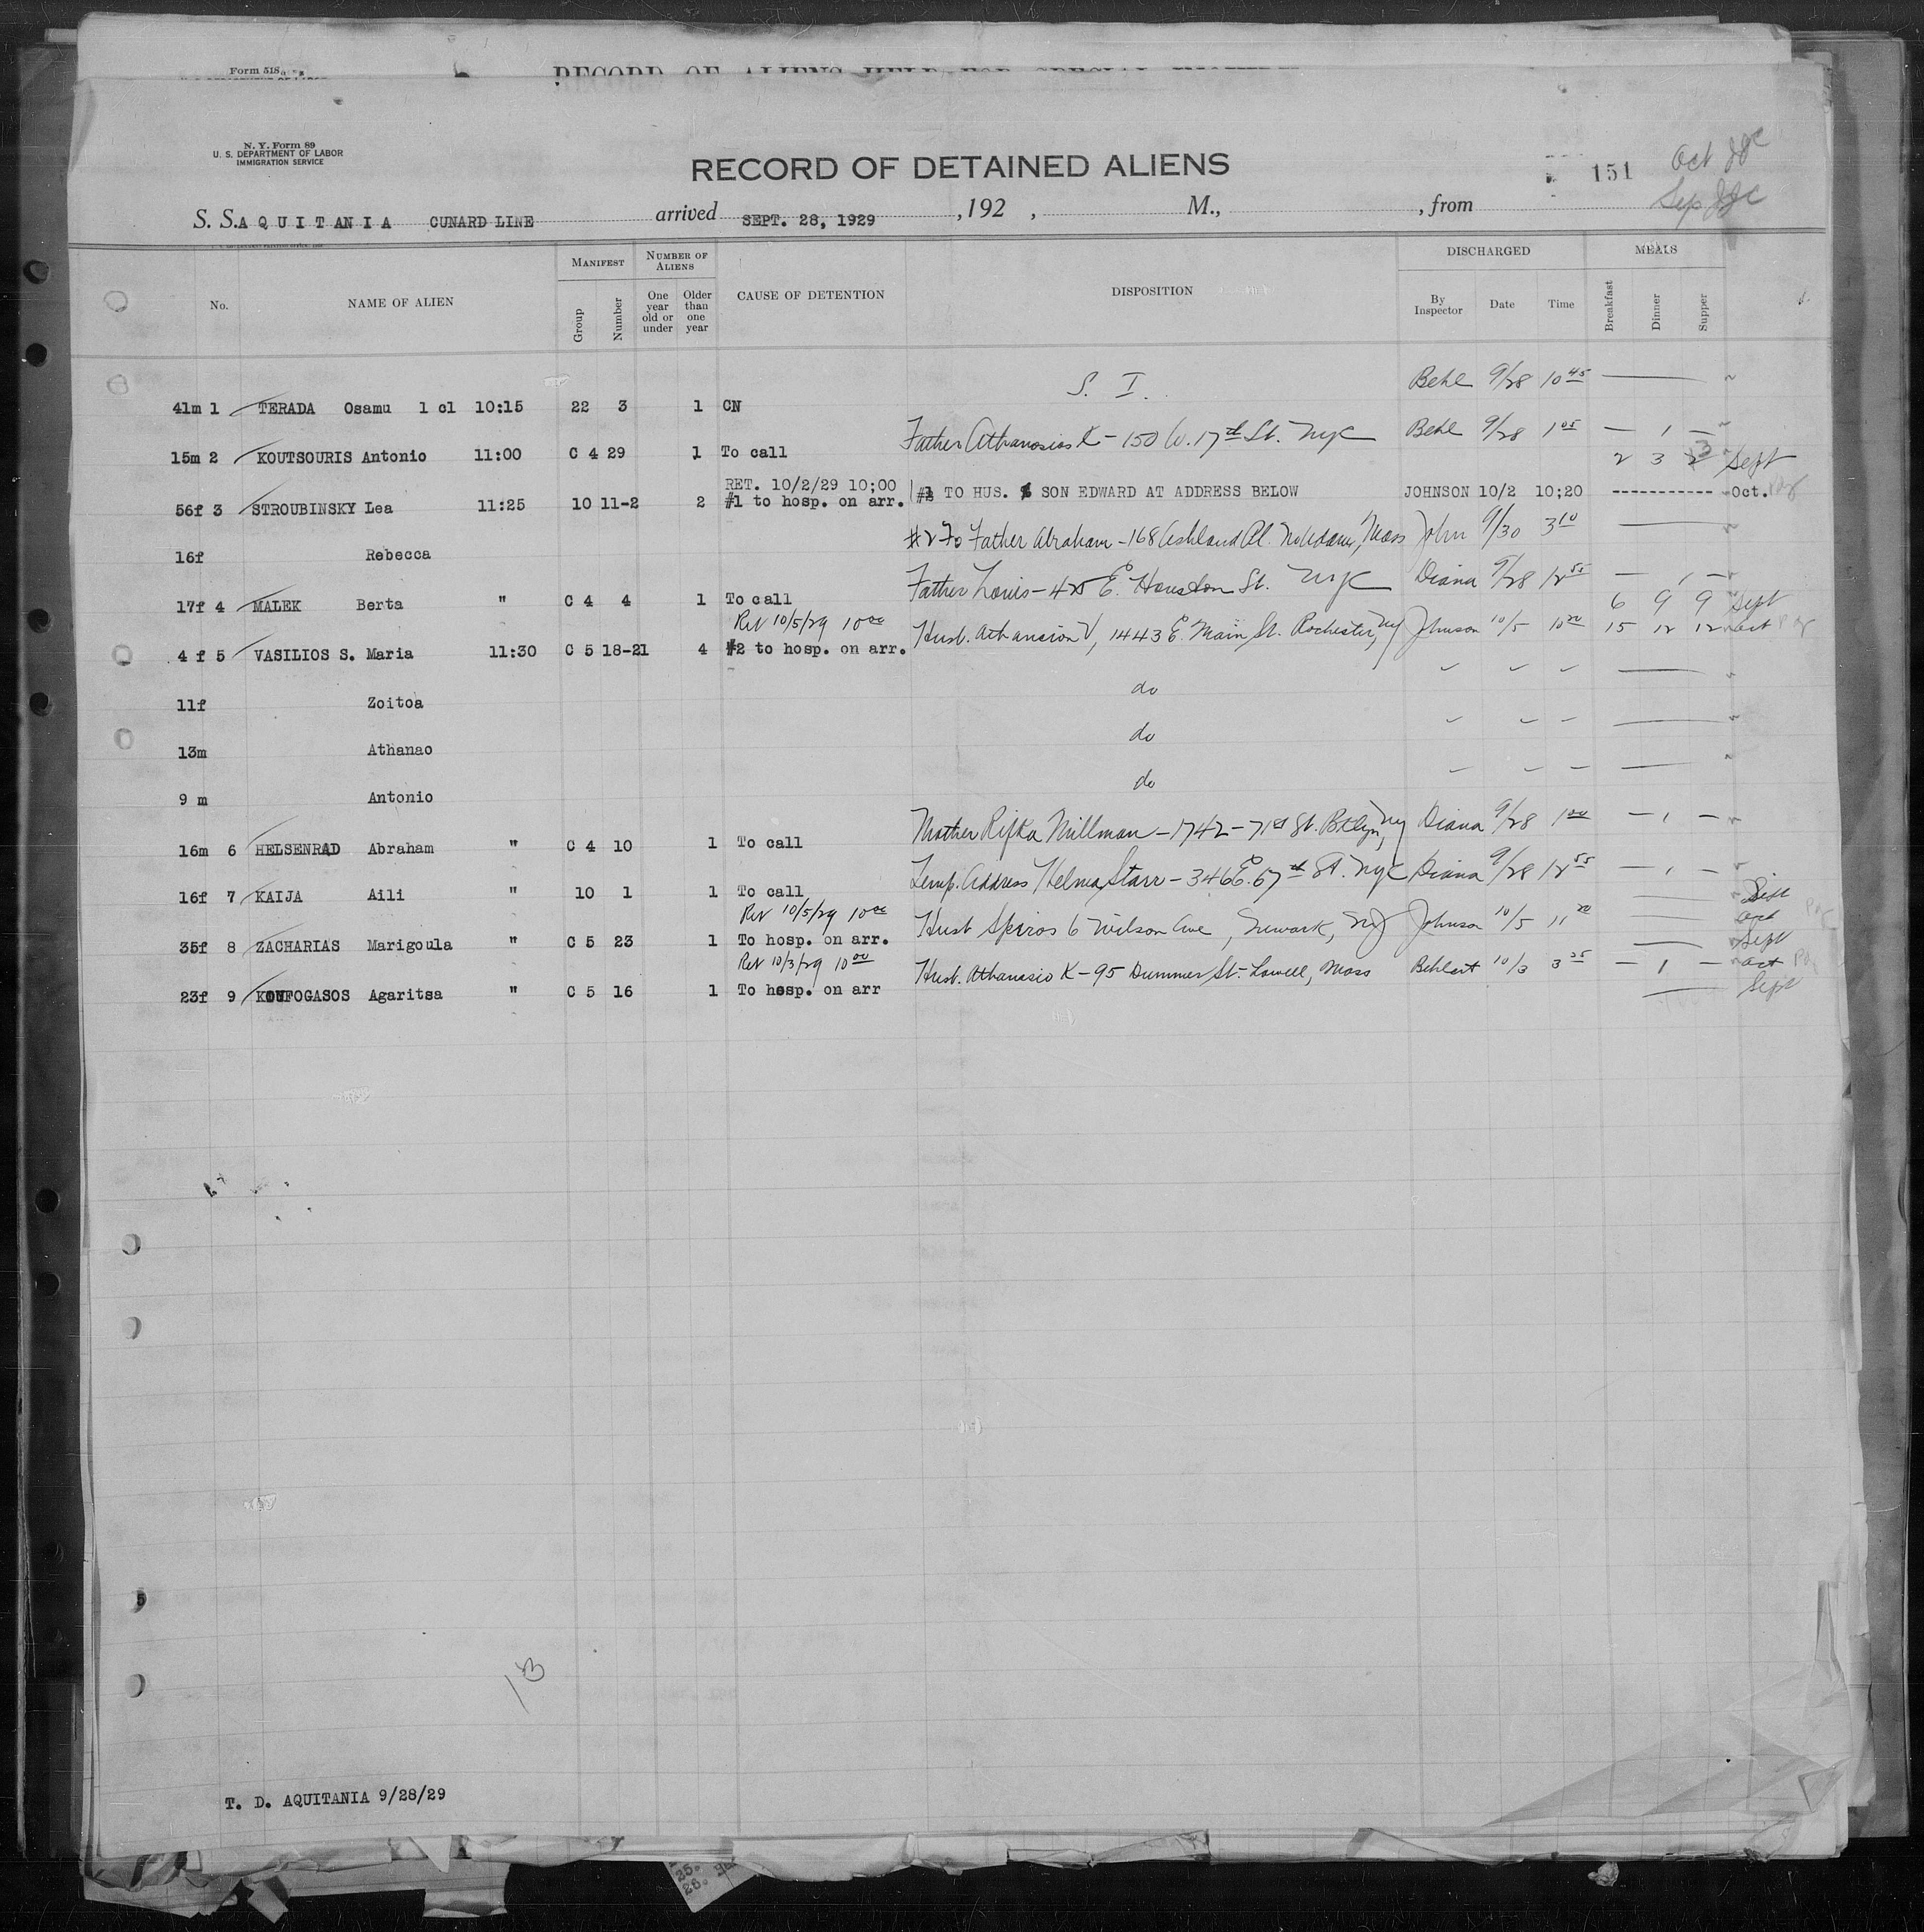 Form 518
RECORD OF ALIENS HELD FOR SPECIAL
N. Y. Form 89
U. S. DEPARTMENT OF LABOR
IMMIGRATION SERVICE
RECORD OF DETAINED ALIENS
151
Oct
Sep
S. S. A Q U I T A N I A CUNARD LINE arrived SEPT. 28, 1929 , 192 , M., , from
No. NAME OF ALIEN MANIFEST Group Number NUMBER OF ALIENS One year old or under Older than one year CAUSE OF DETENTION DISPOSITION DISCHARGED By Inspector Date Time MEALS Breakfast Dinner Supper
S. I. Behl 9/28 10 45
41m 1 TERADA Osamu 1 cl 10:15 22 3 1 CN
Father Athanasios K - 150 W. 17th St. NYC Behl 9/28 1 05 — 1 —
15m 2 KOUTSOURIS Antonio 11:00 C 4 29 1 To call
2 3 Sept
RET. 10/2/29 10;00 #1 TO HUS. & SON EDWARD AT ADDRESS BELOW JOHNSON 10/2 10;20 ----------- Oct.
56f 3 STROUBINSKY Lea 11:25 10 11-2 2 #1 to hosp. on arr.
#2 To Father Abraham - 168 Ashland Pl. No Adams, Mass John 9/30 3 10
16f Rebecca
Father Louis - 425 E. Houston St. NYC Diana 9/28 12 55 — 1 —
17f 4 MALEK Berta " C 4 4 1 To call
6 9 9 Sept
Ret 10/5/29 10 00 Husb. Athansion V, 1443 E. Main St. Rochester, NY Johnson 10/5 10 20 15 12 12 Oct
4 f 5 VASILIOS S. Maria 11:30 C 5 18-21 4 #2 to hosp. on arr.
do
11f Zoitoa
do
13m Athanao
do
9 m Antonio
Mother Rifka Millman - 1742 - 71st St. Bklyn, NY Diana 9/28 1 00 — 1 —
16m 6 HELSENRAD Abraham " C 4 10 1 To call
Temp. Address Helmea Starr - 346 E. 67th St. NYC Diana 9/28 12 55 — 1 —
16f 7 KAIJA Aili " 10 1 1 To call
Ret 10/5/29 10 00 Husb Spiros 6 Wilson Ave, Newark, NJ Johnson 10/5 11 20 Oct
35f 8 ZACHARIAS Marigoula " C 5 23 1 To hosp. on arr. Sept
Ret 10/3/29 10 00 Husb. Athanasio K - 95 Dummer St. Lowell, Mass Behlert 10/3 3 25 — 1 — Oct
23f 9 KOUFOGASOS Agaritsa " C 5 16 1 To hosp. on arr Sept
5
13
T. D. AQUITANIA 9/28/29
25.
26.